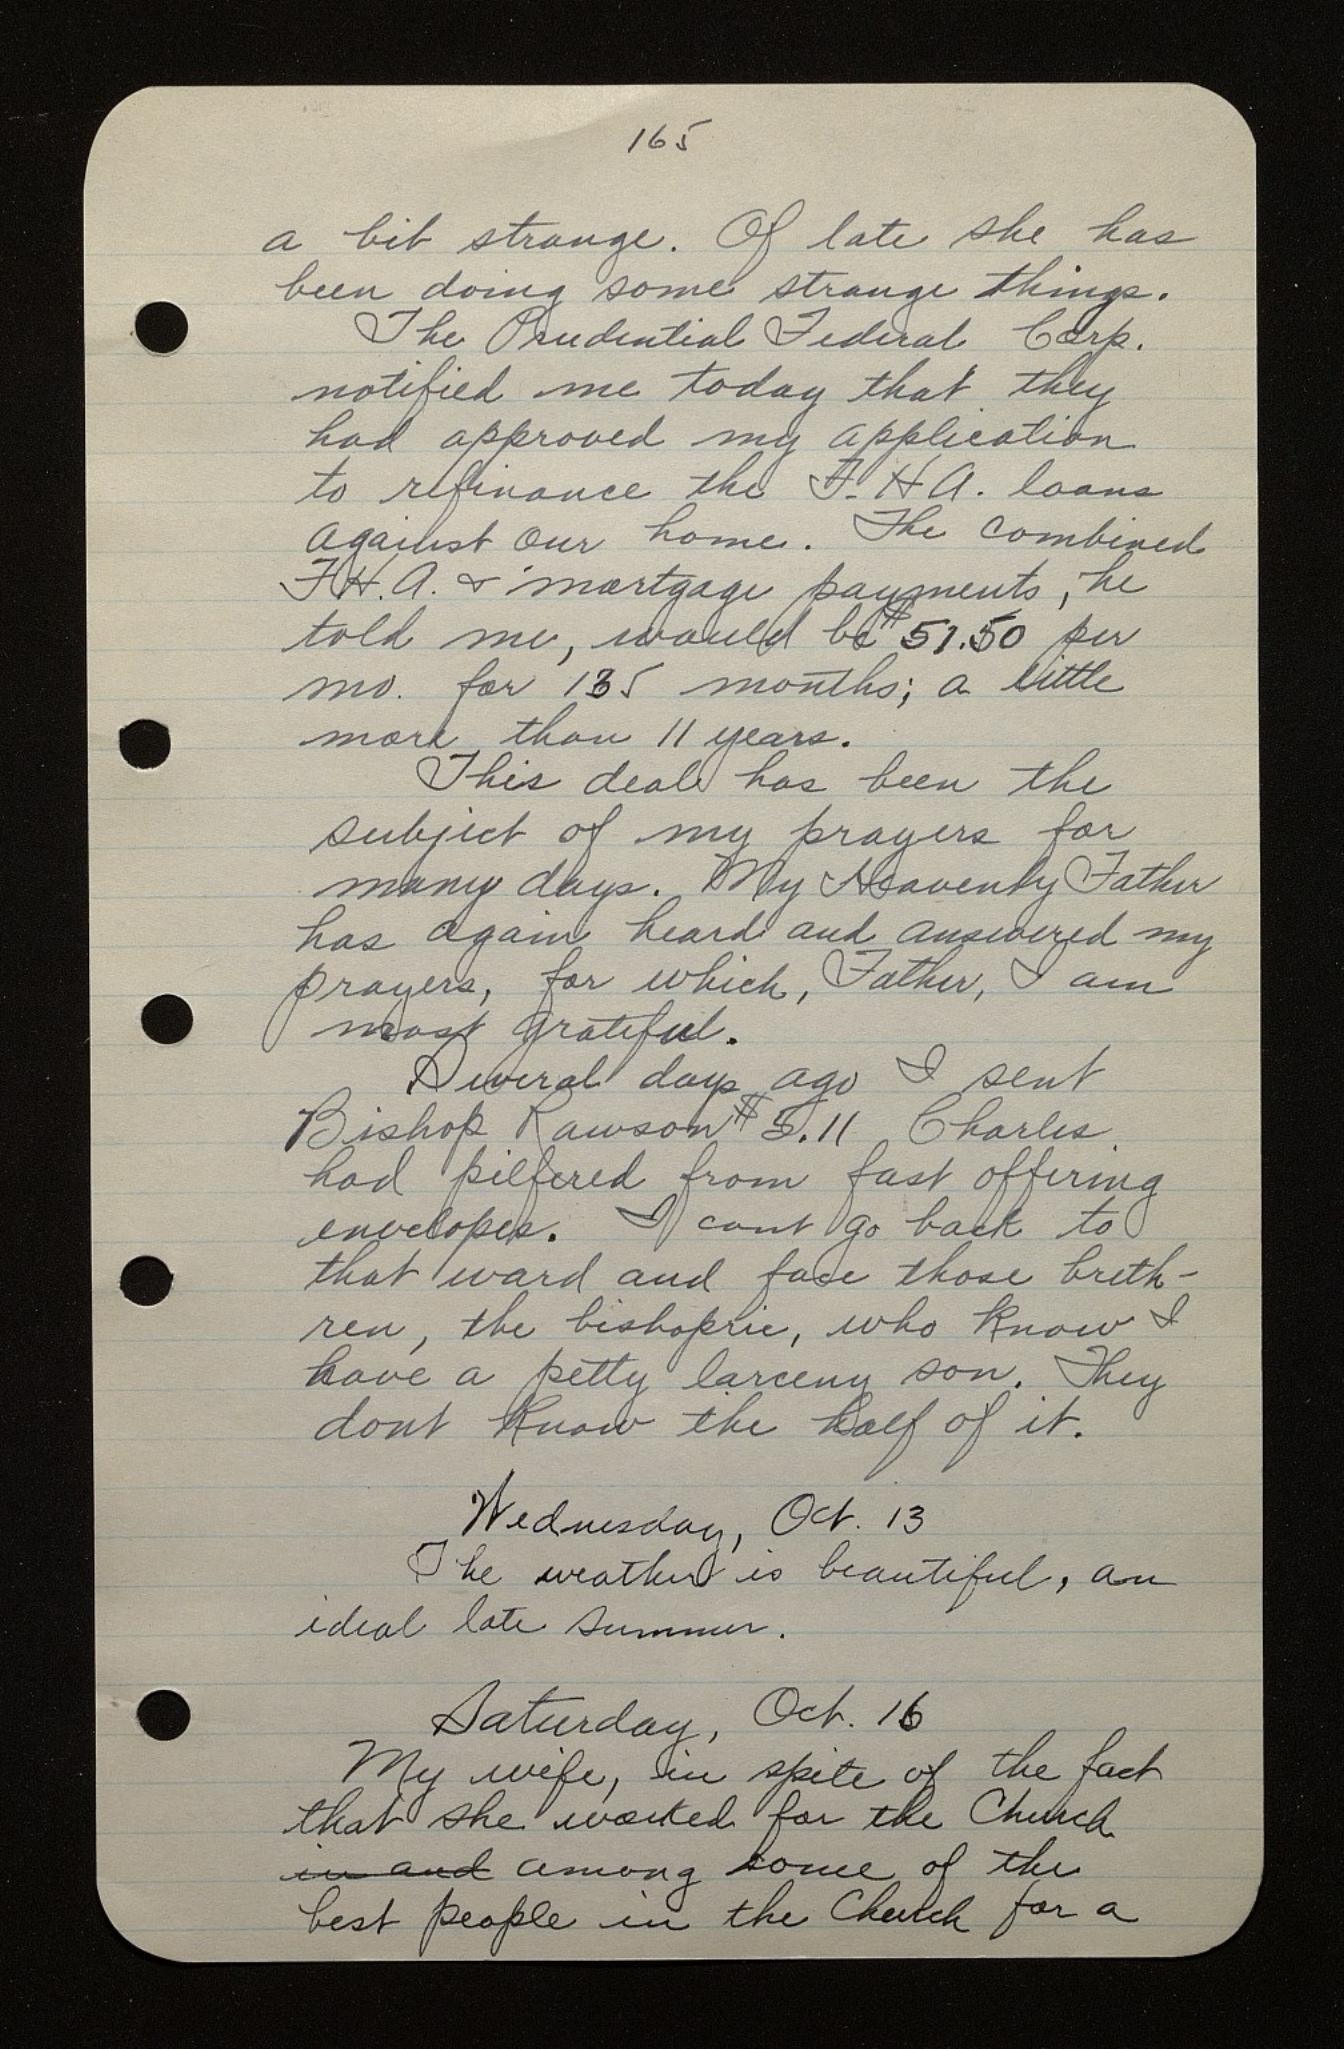 165
a bit strange. Of late she has
been doing some strange things.
The Prudential Federal Corp.
notified me today that they
had approved my application
to refinance the F.H.A. loans
against our home. The combined
F.H.A. & mortgage payments, he
told me, would be $51.50 per
mo. for 135 months; a little
more than 11 years.
This deal has been the
subject of my prayers for
many days. My Heavenly Father
has again heard and answered my
prayers, for which, Father, I am
most grateful.
Several days ago I sent
Bishop Rawson $5.11 Charles
had pilfered from fast offering
envelopes. I cant go back to
that ward and face those breth-
ren, the bishopric, who know I
have a petty larceny son. They
dont know the half of it.
Wednesday, Oct. 13
The weather is beautiful, an
ideal late summer.
Saturday, Oct. 16
My wife, in spite of the fact
that she worked for the Church
in and among some of the
best people in the Church for a